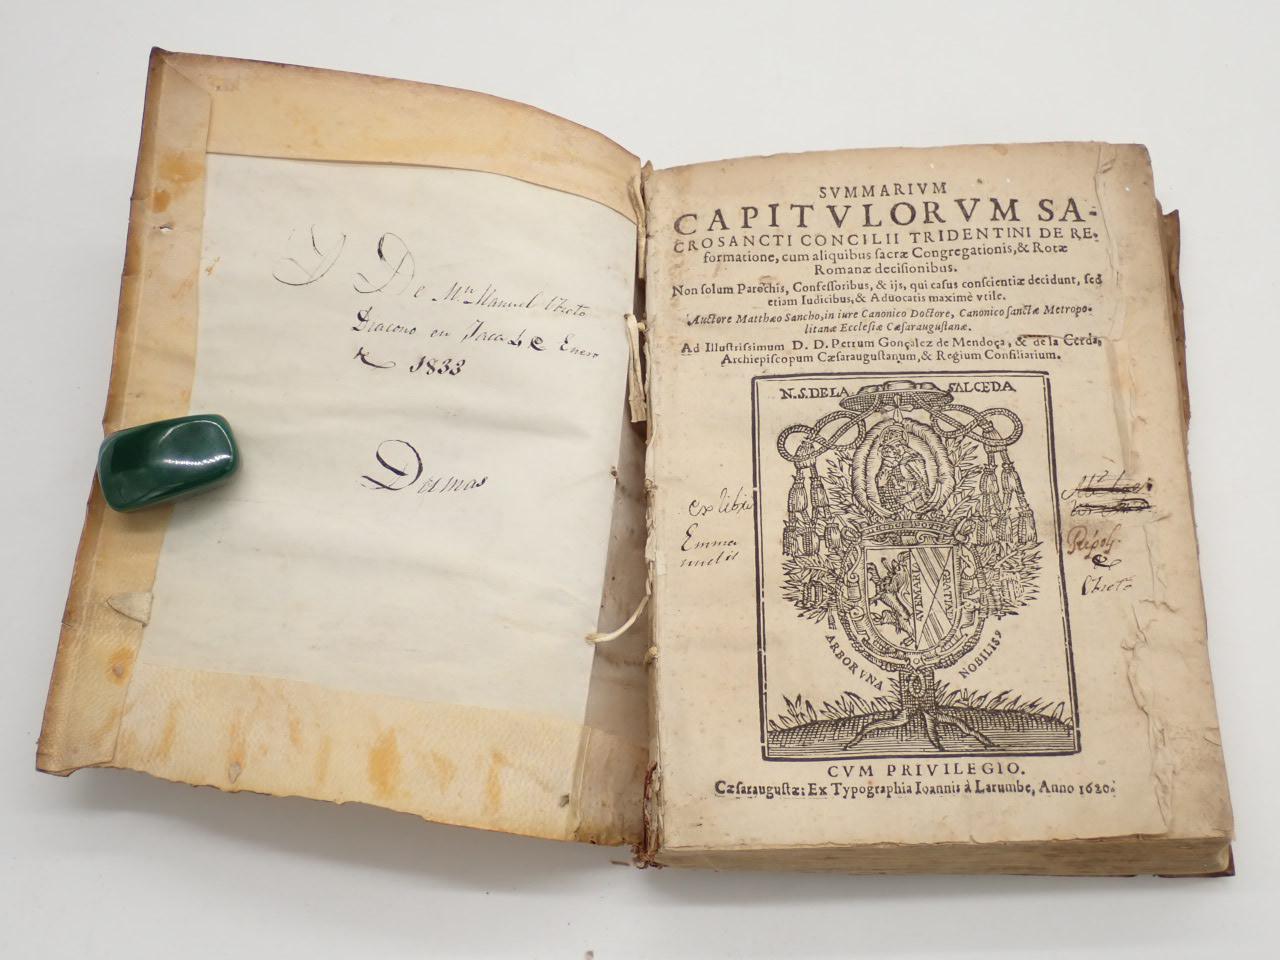 De Mn Manuel
Diacono en Jaca & Enero
1833
Dumas
SVMMARIVM
CAPITVLORVM SA-
CROSANCTI CONCILII TRIDENTINI DE RE-
formatione, cum aliquibus sacræ Congregationis, & Rotæ
Romanæ decisionibus.
Non solum Parochis, Confessoribus, & ijs, qui casus conscientiæ decidunt, sed
etiam Iudicibus, & Aduocatis maximè vtile.
Auctore Matthæo Sancho, in iure Canonico Doctore, Canonico sanctæ Metropo-
litanæ Ecclesiæ Cæsaraugustanæ.
Ad Illustrissimum D. D. Petrum Gonçalez de Mendoça, & de la Cerda,
Archiepiscopum Cæsaraugustanum, & Regium Consiliarium.
N.S.DE LA SALCEDA
AVE MARIA
ARBOR VNA NOBILIS
ex libris
Emma
nuelis
Ripol
CVM PRIVILEGIO.
Cæsaraugustæ: Ex Typographia Ioannis à Larumbe, Anno 1620.